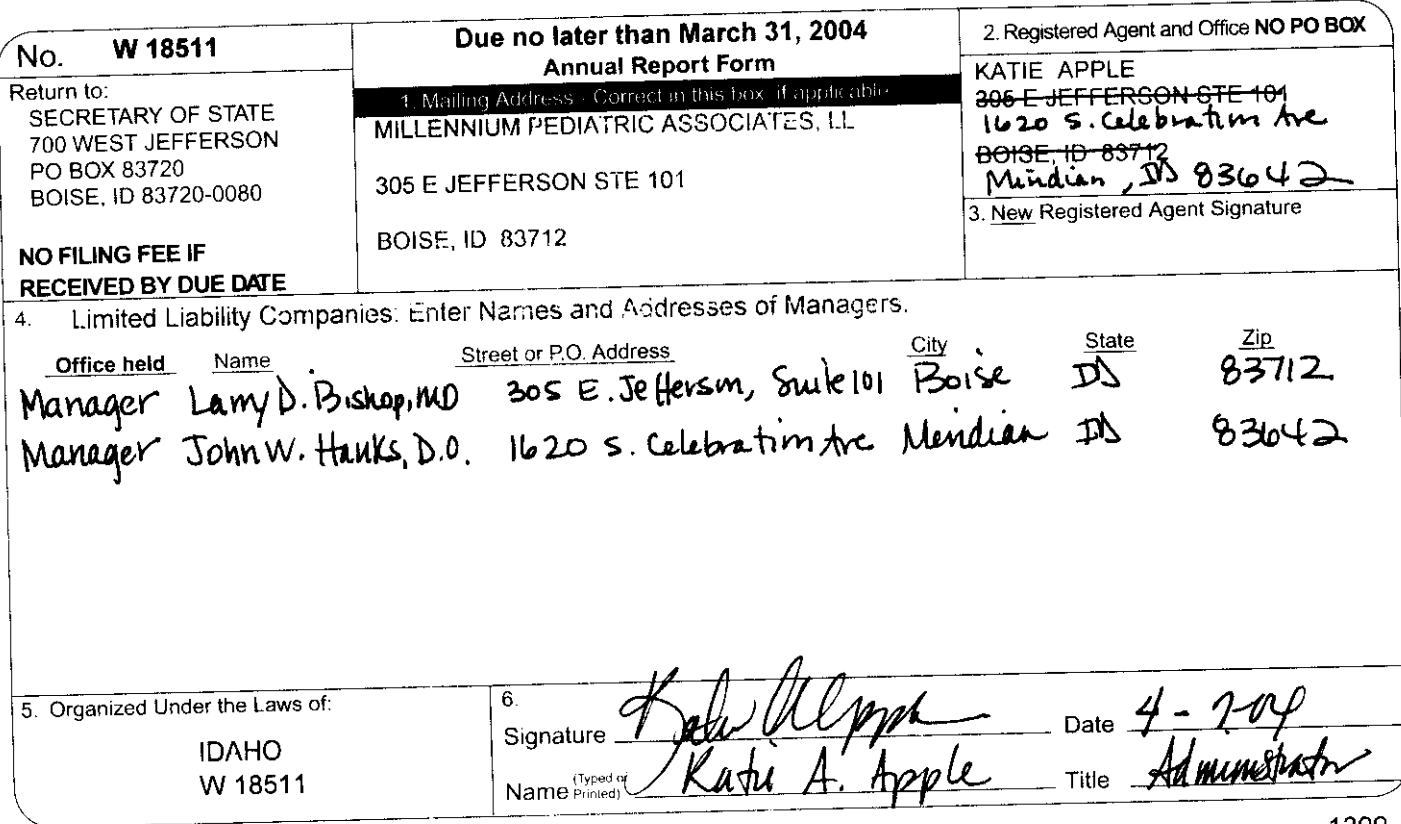 No. W 18511
Return to:
SECRETARY OF STATE
700 WEST JEFFERSON
PO BOX 83720
BOISE, ID 83720-0080
NO FILING FEE IF
RECEIVED BY DUE DATE
Due no later than March 31, 2004
Annual Report Form
1. Mailing Address - Correct in this box, if applicable
MILLENNIUM PEDIATRIC ASSOCIATES, LL
305 E JEFFERSON STE 101
BOISE, ID 83712
2. Registered Agent and Office NO PO BOX
KATIE APPLE
305 E JEFFERSON STE 101
1620 S. Celebration Ave
BOISE, ID 83712
Meridian, ID 83642
3. New Registered Agent Signature
4. Limited Liability Companies: Enter Names and Addresses of Managers.
Office held Name Street or P.O. Address City State Zip
Manager Larry D. Bishop, MD 305 E. Jefferson, Suite 101 Boise ID 83712
Manager John W. Hanks, D.O. 1620 S. Celebration Ave Meridian ID 83642
5. Organized Under the Laws of:
IDAHO
W 18511
6.
Signature Katie A Apple Date 4-
Name (Typed or Printed) Katie A. Apple Title Administrator